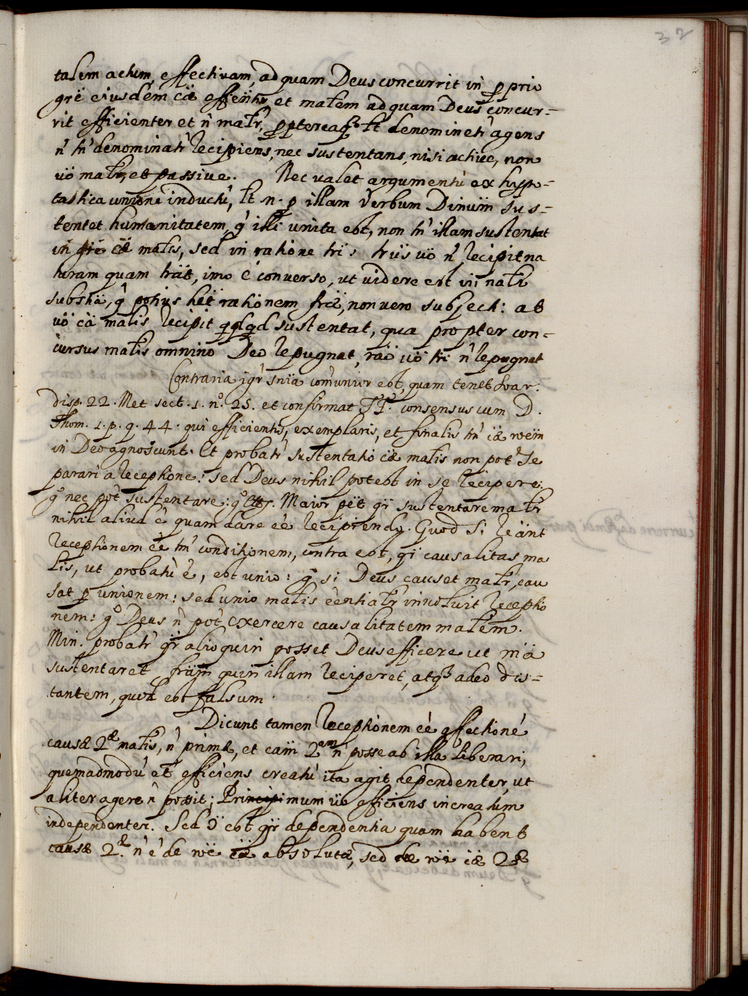 32
talem actum, effectivam, ad quam Deus concurrit in ꝓprio
grē eiusdem cæ effētis, et malem ad quam Deus concur-
rit efficienter et ñ malr, ꝓpterea lt denominetr agens
ñ tñ denominatr recipiens, nec sustentans, nisi active, non
vō malr, et passive. Nec valet argumentū ex hypo-
tastica unione inductū, lt n. p illam Verbum Divinū sus-
tentet humanitatem, q̄ illi unita est, non tñ illam sustentat
in grē cæ malis, sed in ratione tri: trus vō ñ recipit na
turam quam trāt, imo è converso, ut videre est in nali
subsīa, q̄ potius hēt rationem frē, non vero subjecti: at
vō cā malis recipit qdqd sustentat, qua propter con-
cursus malis omnino Deo repugnat, raō vō tri ñ repugnat
Contraria igr snīa comūnior est, quam tenet Soar.
disp. 22. Met sect. 1. nº. 25. et confirmat PP. consensus cum D.
Thom. 1. p. q. 44. qui efficientis, exemplaris, et finalis tñ cæ rōem
in Deo agnoscunt. Et probatr sustentatio cæ malis non pot se
parari a receptione: sed Deus nihil potest in se recipere:
gº nec pot sustentare: gº Maior pēt qr sustentare malr
nihil aliud ē quam dare eē recipiendo. Quod si reānt
receptionem eē tñ conditionem, contra est, qr causalitas ma
lis, ut probatū ē, est unio: gº si Deus causet malr, cau
sat ꝑ unionem: sed unio malis eēntialr involvit receptio
nem: gº Deus ñ pot exercere causalitatem malem.
Min. probatr qr alioquin posset Deus efficere ut mā
sustentaret frām quin illam reciperet, atq; adeo dis-
tantem, quod est falsum.
Dicunt tamen receptionem eē affectionē
causæ 2æ malis, ñ primæ, et cām 2am ñ posse ab illa liberari;
quemadmodū et efficiens creatū ita agit dependenter, ut
aliter agere ñ possit; Primum vō efficiens increatum
independenter. Sed est qr dependentia quam habent
causæ 2æ ñ ē de rōe cæ absolutæ, sed de rōe cæ 2æ